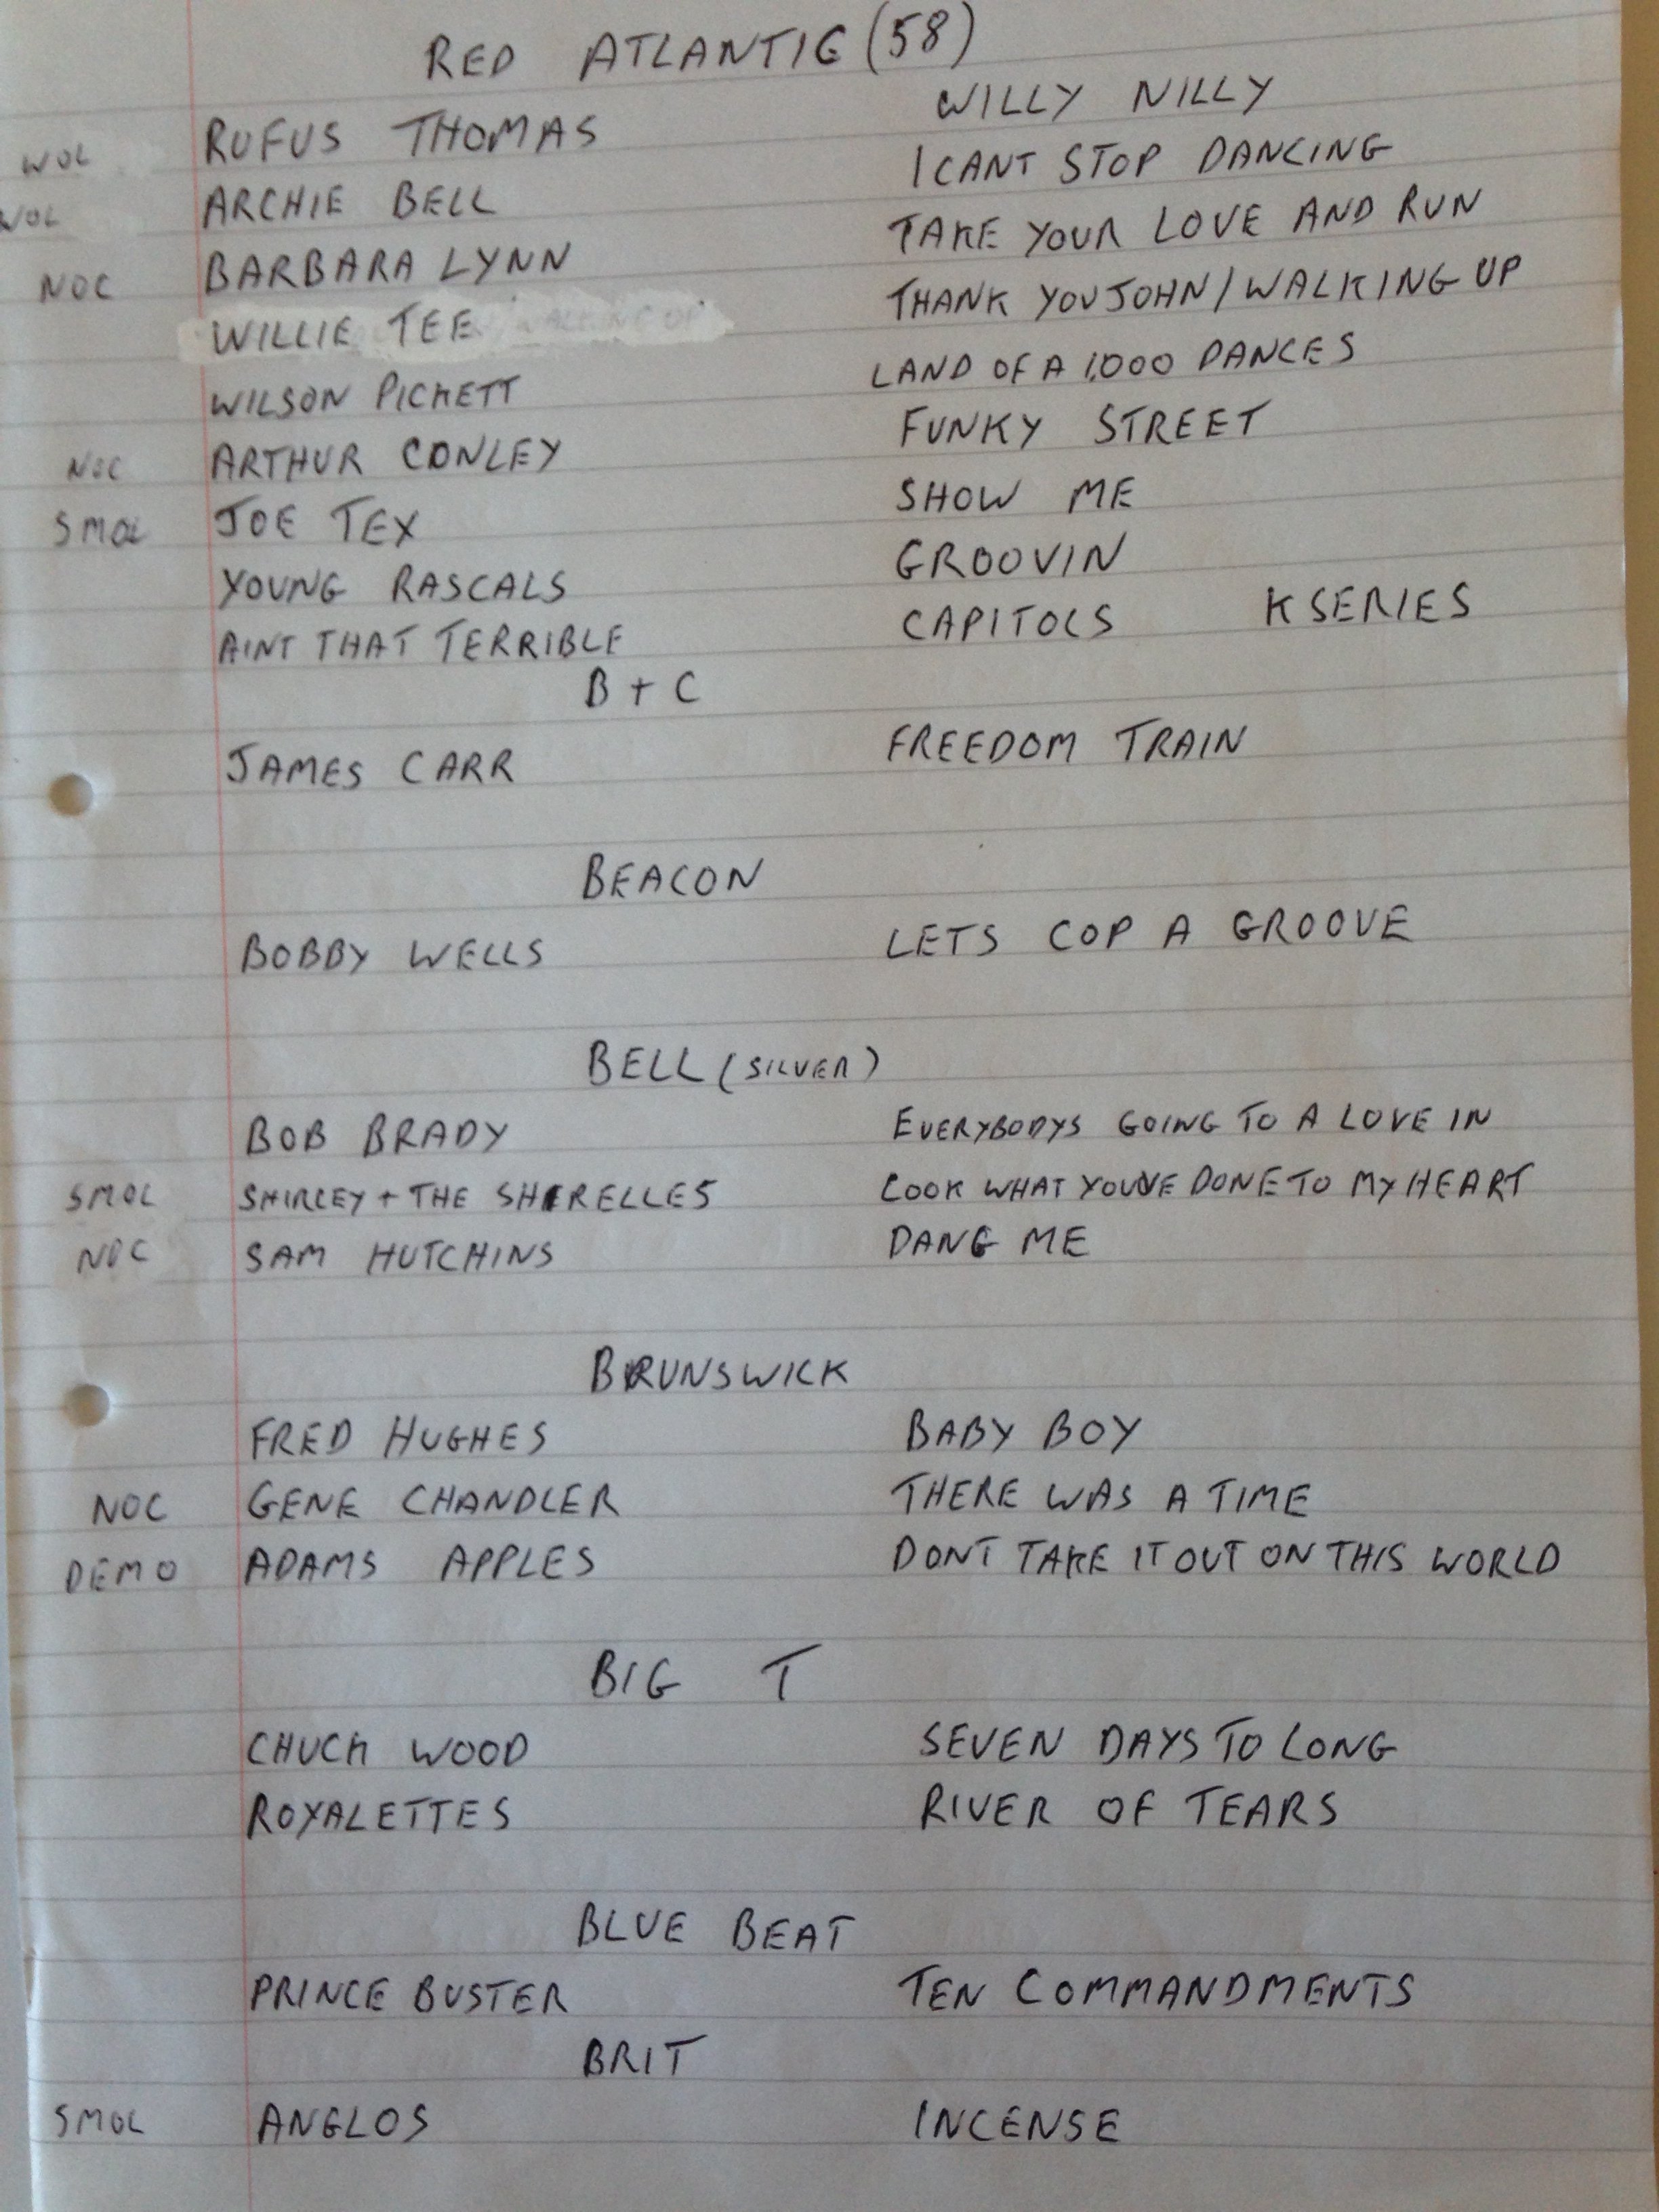 RED ATLANTIC (58)
WOL RUFUS THOMAS WILLY NILLY
WOL ARCHIE BELL I CANT STOP DANCING
NOC BARBARA LYNN TAKE YOUR LOVE AND RUN
WILLIE TEE WALKING UP THANK YOU JOHN / WALKING UP
WILSON PICKETT LAND OF A 1,000 DANCES
NOC ARTHUR CONLEY FUNKY STREET
SMOL JOE TEX SHOW ME
YOUNG RASCALS GROOVIN
AINT THAT TERRIBLE CAPITOLS K SERIES
B + C
JAMES CARR FREEDOM TRAIN
BEACON
BOBBY WELLS LETS COP A GROOVE
BELL (SILVER)
BOB BRADY EVERYBODYS GOING TO A LOVE IN
SMOL SHIRLEY + THE SHIRELLES LOOK WHAT YOUVE DONE TO MY HEART
NOC SAM HUTCHINS DANG ME
BRUNSWICK
FRED HUGHES BABY BOY
NOC GENE CHANDLER THERE WAS A TIME
DEMO ADAMS APPLES DONT TAKE IT OUT ON THIS WORLD
BIG T
CHUCK WOOD SEVEN DAYS TO LONG
ROYALETTES RIVER OF TEARS
BLUE BEAT
PRINCE BUSTER TEN COMMANDMENTS
BRIT
SMOL ANGLOS INCENSE